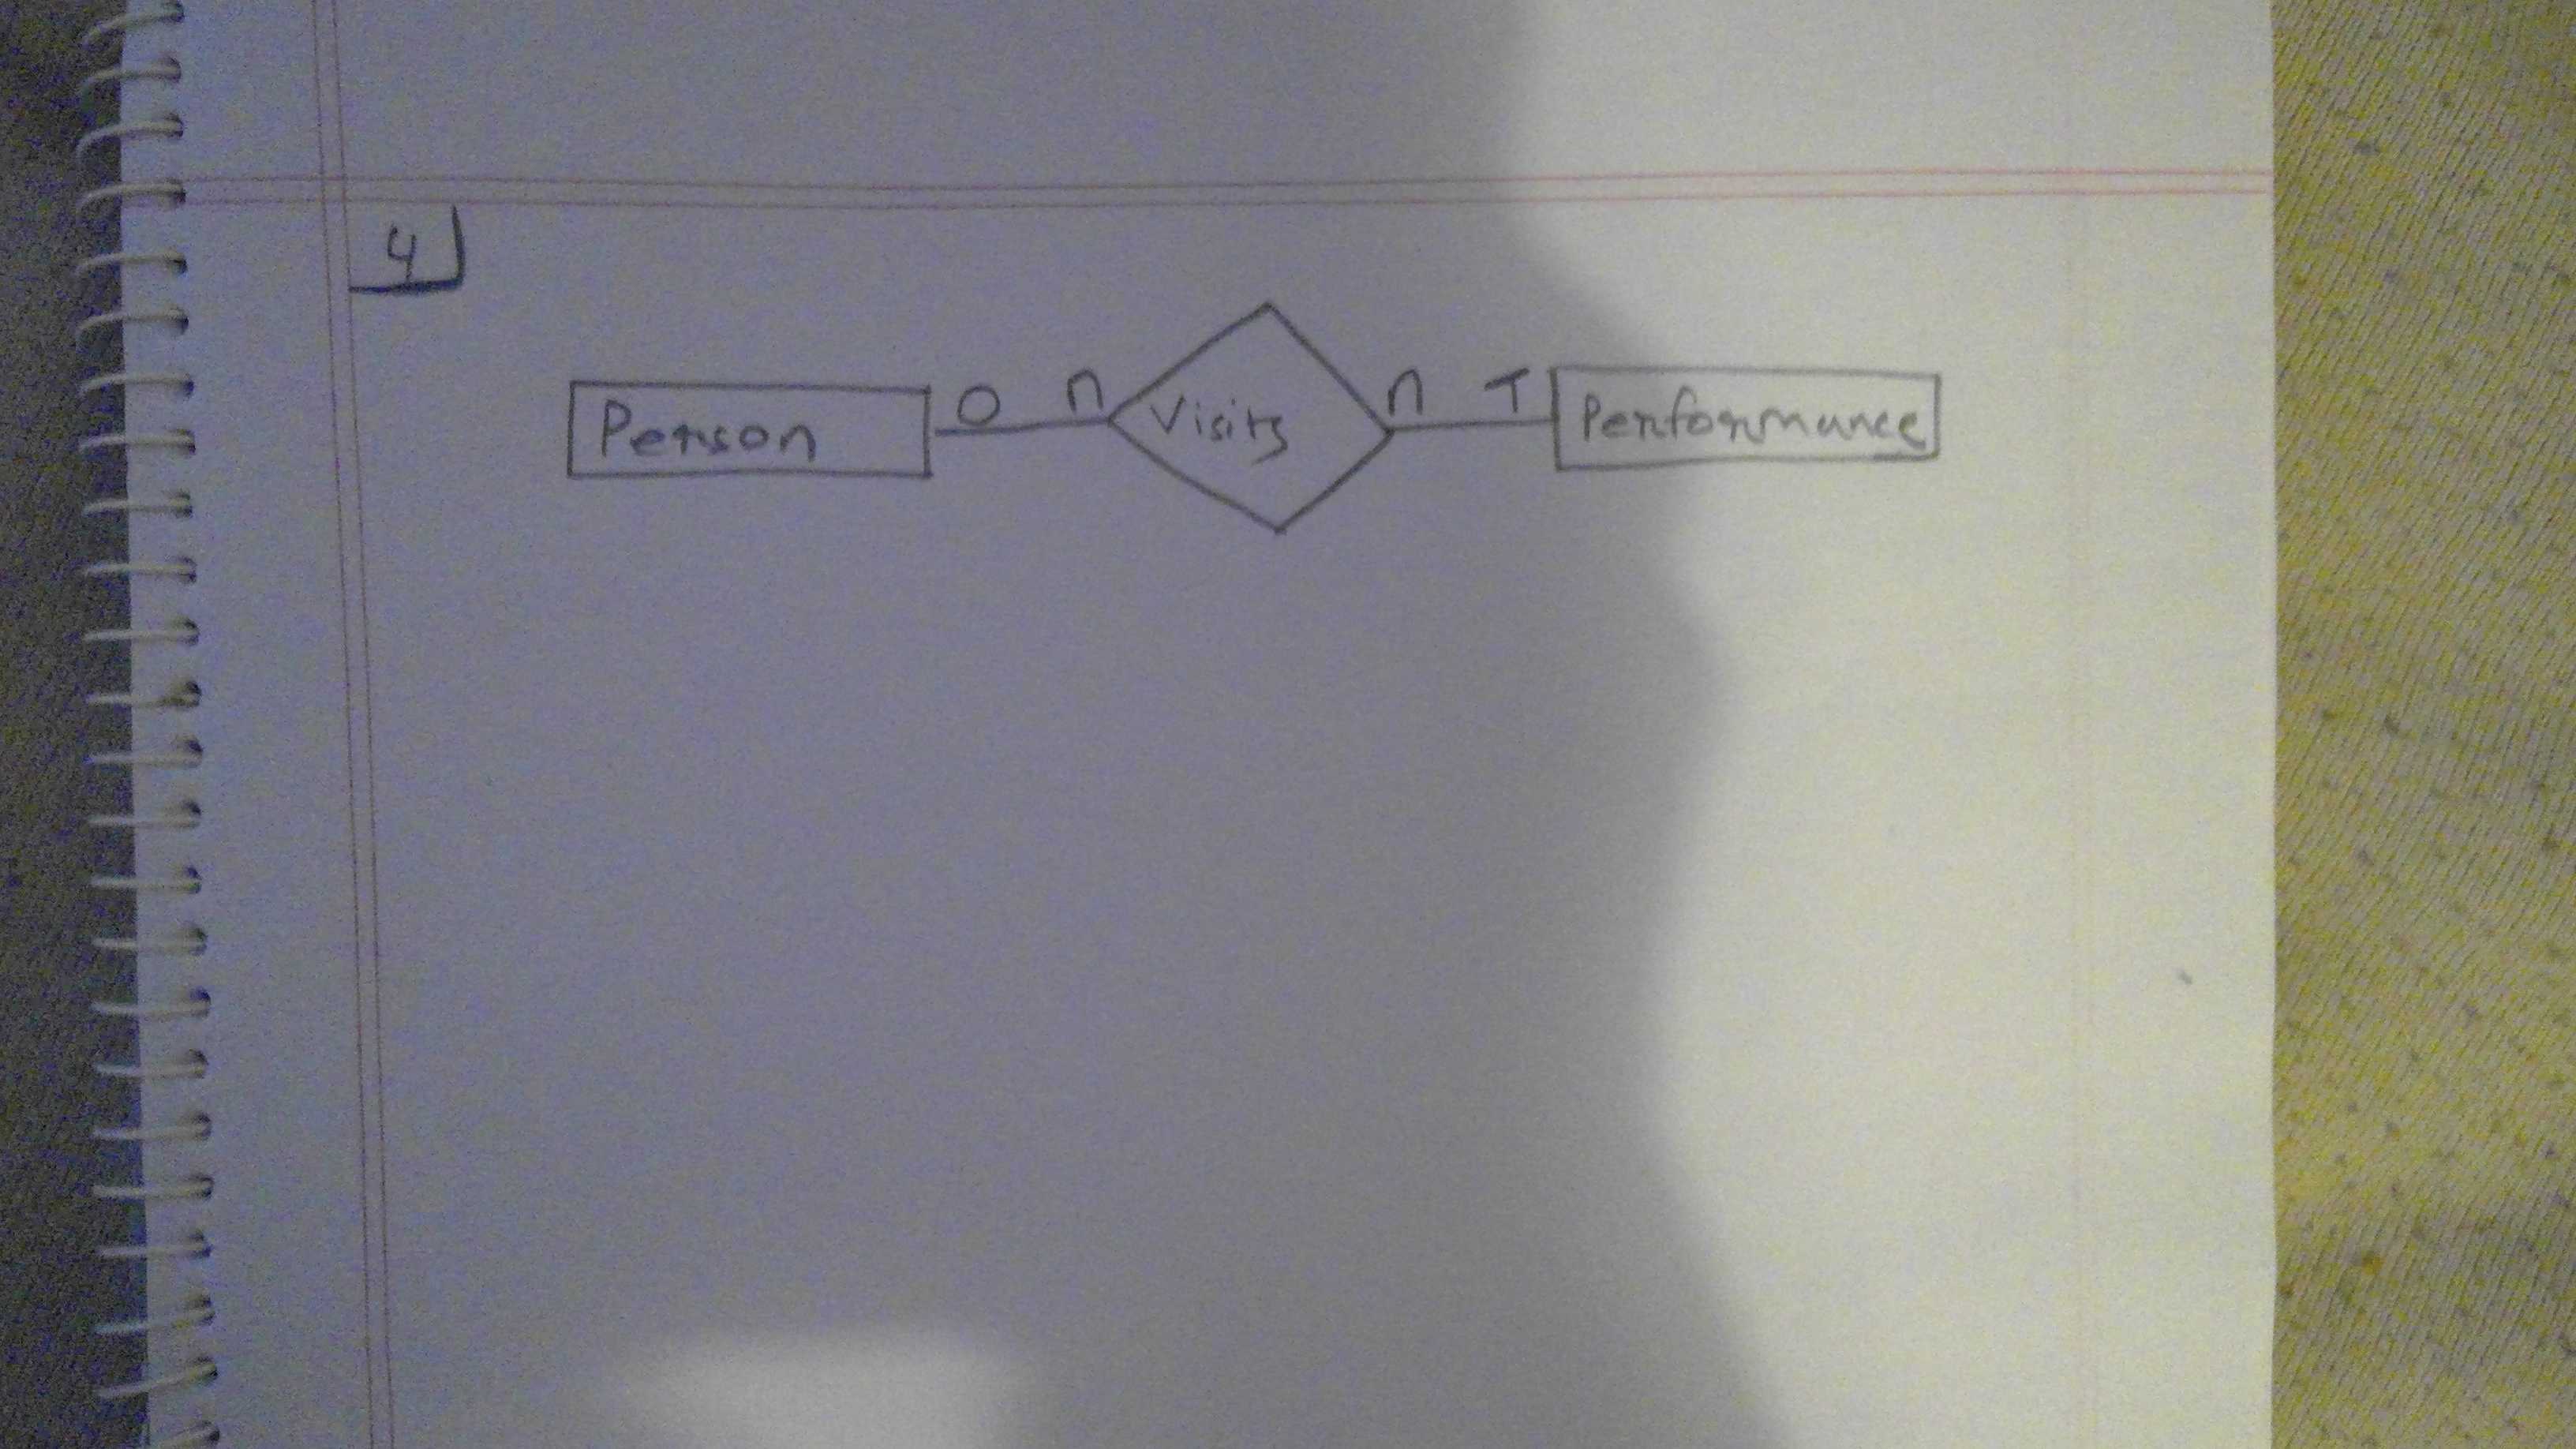 4
Person O n Visits n T Performance